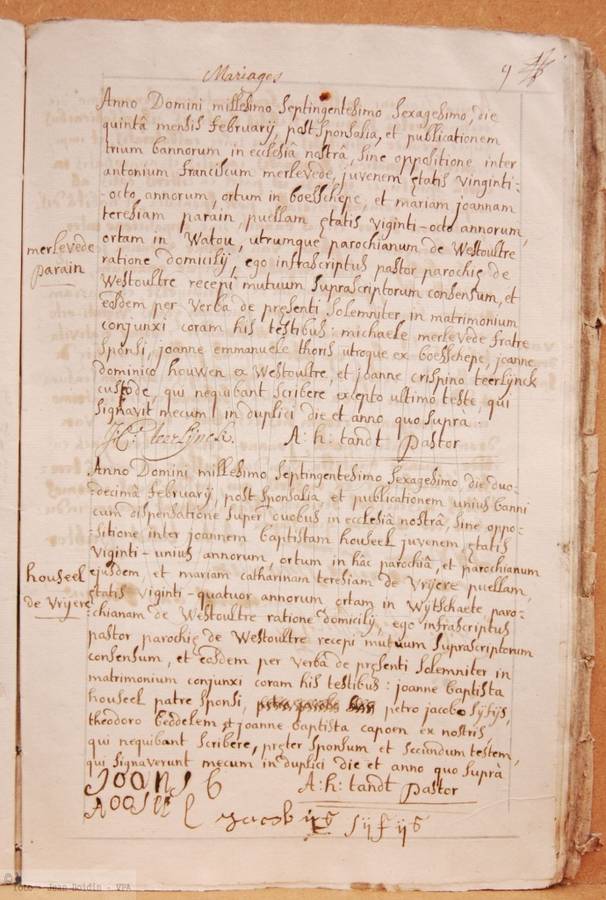 Mariages
9
Anno Domini millesimo Septingentesimo Sexagesimo, die
quintâ mensis februarij, post sponsalia, et publicationem
trium bannorum in ecclesiâ nostrâ, sine oppositione inter
antonium franciscum merlevede, juvenem ętatis vinginti-
-octo annorum, ortum in boesschepe, et mariam joannam
teresiam parain, puellam ętatis viginti-octo annorum,
ortam in Watou, utrumque parochianum de Westoultre
merlevede
parain
ratione domicilij, ego infrascriptus pastor parochię de
Westoultre recepi mutuum suprascriptorum consensum, et
eosdem per verba de pręsenti solemniter in matrimonium
conjunxi coram his testibus: michaele merlevede fratre
sponsi, joanne emmanuele thoris utroque ex boesschepe, joanne
dominico houwen ex Westoultre, et joanne crispino teerlijnck
custode, qui nequibant scribere excepto ultimo teste, qui
signavit mecum in duplici die et anno quo supra.
J:C: teerlijnck. A: h: tandt Pastor
Anno Domini millesimo Septingentesimo Sexagesimo, die duo-
-decimâ februarij, post sponsalia et publicationem unius banni
cum dispensatione super duobus in ecclesiâ nostrâ, sine oppo-
-sitione inter joannem baptistam houseel juvenem ętatis
viginti-unius annorum, ortum in hâc parochiâ, et parochianum
houseel
de Vrijere
ejusdem, et mariam catharinam teresiam de Vrijere puellam,
ętatis viginti-quatuor annorum ortam in Wijtschaete paro-
-chianam de Westoultre ratione domicilij, ego infrascriptus
pastor parochię de Westoultre recepi mutuum suprascriptorum
consensum, et eosdem per verba de pręsenti solemniter in
matrimonium conjunxi coram his testibus: joanne baptista
houseel patre sponsi, petro jacobo sijfijs,
theodoro beddelem et joanne baptista capoen ex nostris,
qui nequibant scribere, pręter sponsum et secundum testem,
qui signaverunt mecum in duplici die et anno quo suprà
Joans b A: h: tandt Pastor
hoosel jacobus sijfijs
foto - Jean Doidin - VPA